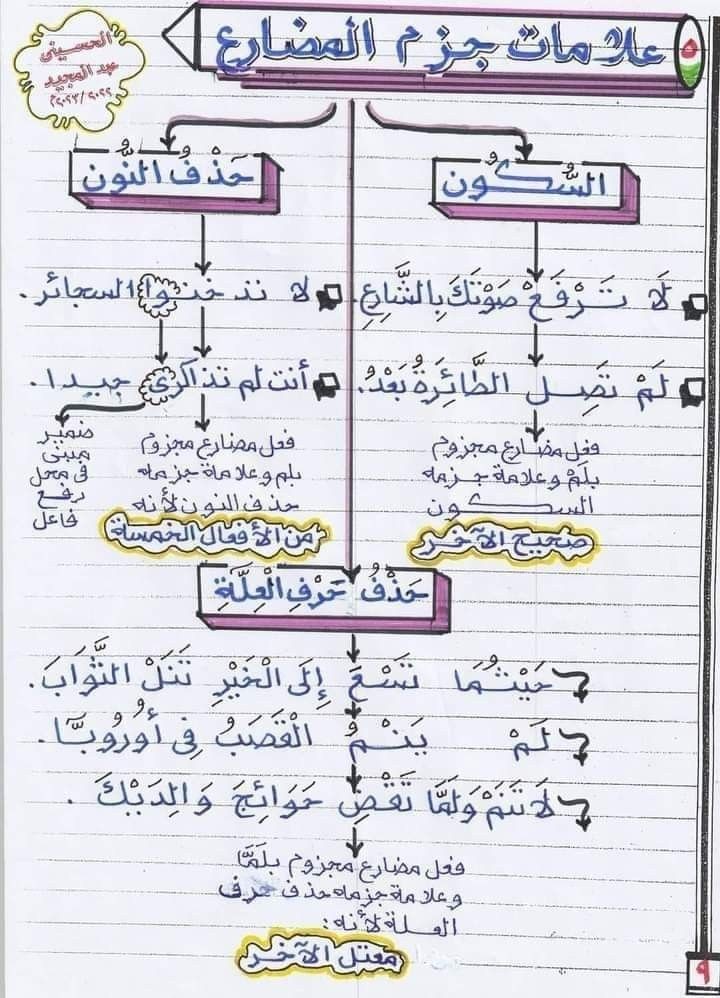 علامات جزم المضارع
٥
الحسيني
عبد المجيد
٢٠٢٣/٢٠٢٢م
السُّكُون
لَا تَرْفَعْ صَوْتَكَ بِالشَّارِعِ.
لَمْ تَصِلِ الطَّائِرَةُ بَعْدُ.
فعل مضارع مجزوم
بلَمْ وعلامة جزمه
السكون
صحيح الآخر
حَذْفُ النُّون
لا تدخنوا السجائر.
أنت لم تذاكرى جيدا.
فعل مضارع مجزوم
بلم وعلامة جزمه
حذف النون لأنه
من الأفعال الخمسة
ضمير
مبنى
فى محل
رفع
فاعل
حَذْفُ حَرْفِ الْعِلَّةِ
حَيْثُمَا تَسْعَ إِلَى الْخَيْرِ تَنَلْ الثَّوَابَ.
لَمْ يَنْمُ الْقَصَبُ فِى أُورُوبَّا.
لَا تَنَمْ وَلَمَّا تَقْضِ حَوَائِجَ وَالِدَيْكَ.
فعل مضارع مجزوم بلَمَّا
وعلامة جزمه حذف حرف
العلة لأنه:
معتل الآخر
٩